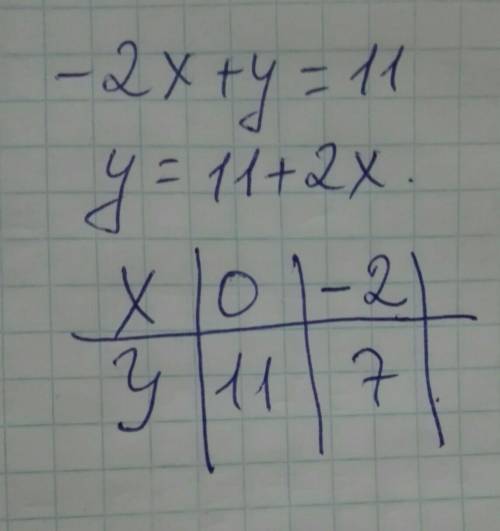 -2x+y=11
y=11+2x.
x | 0 | -2 |
y | 11 | 7 |